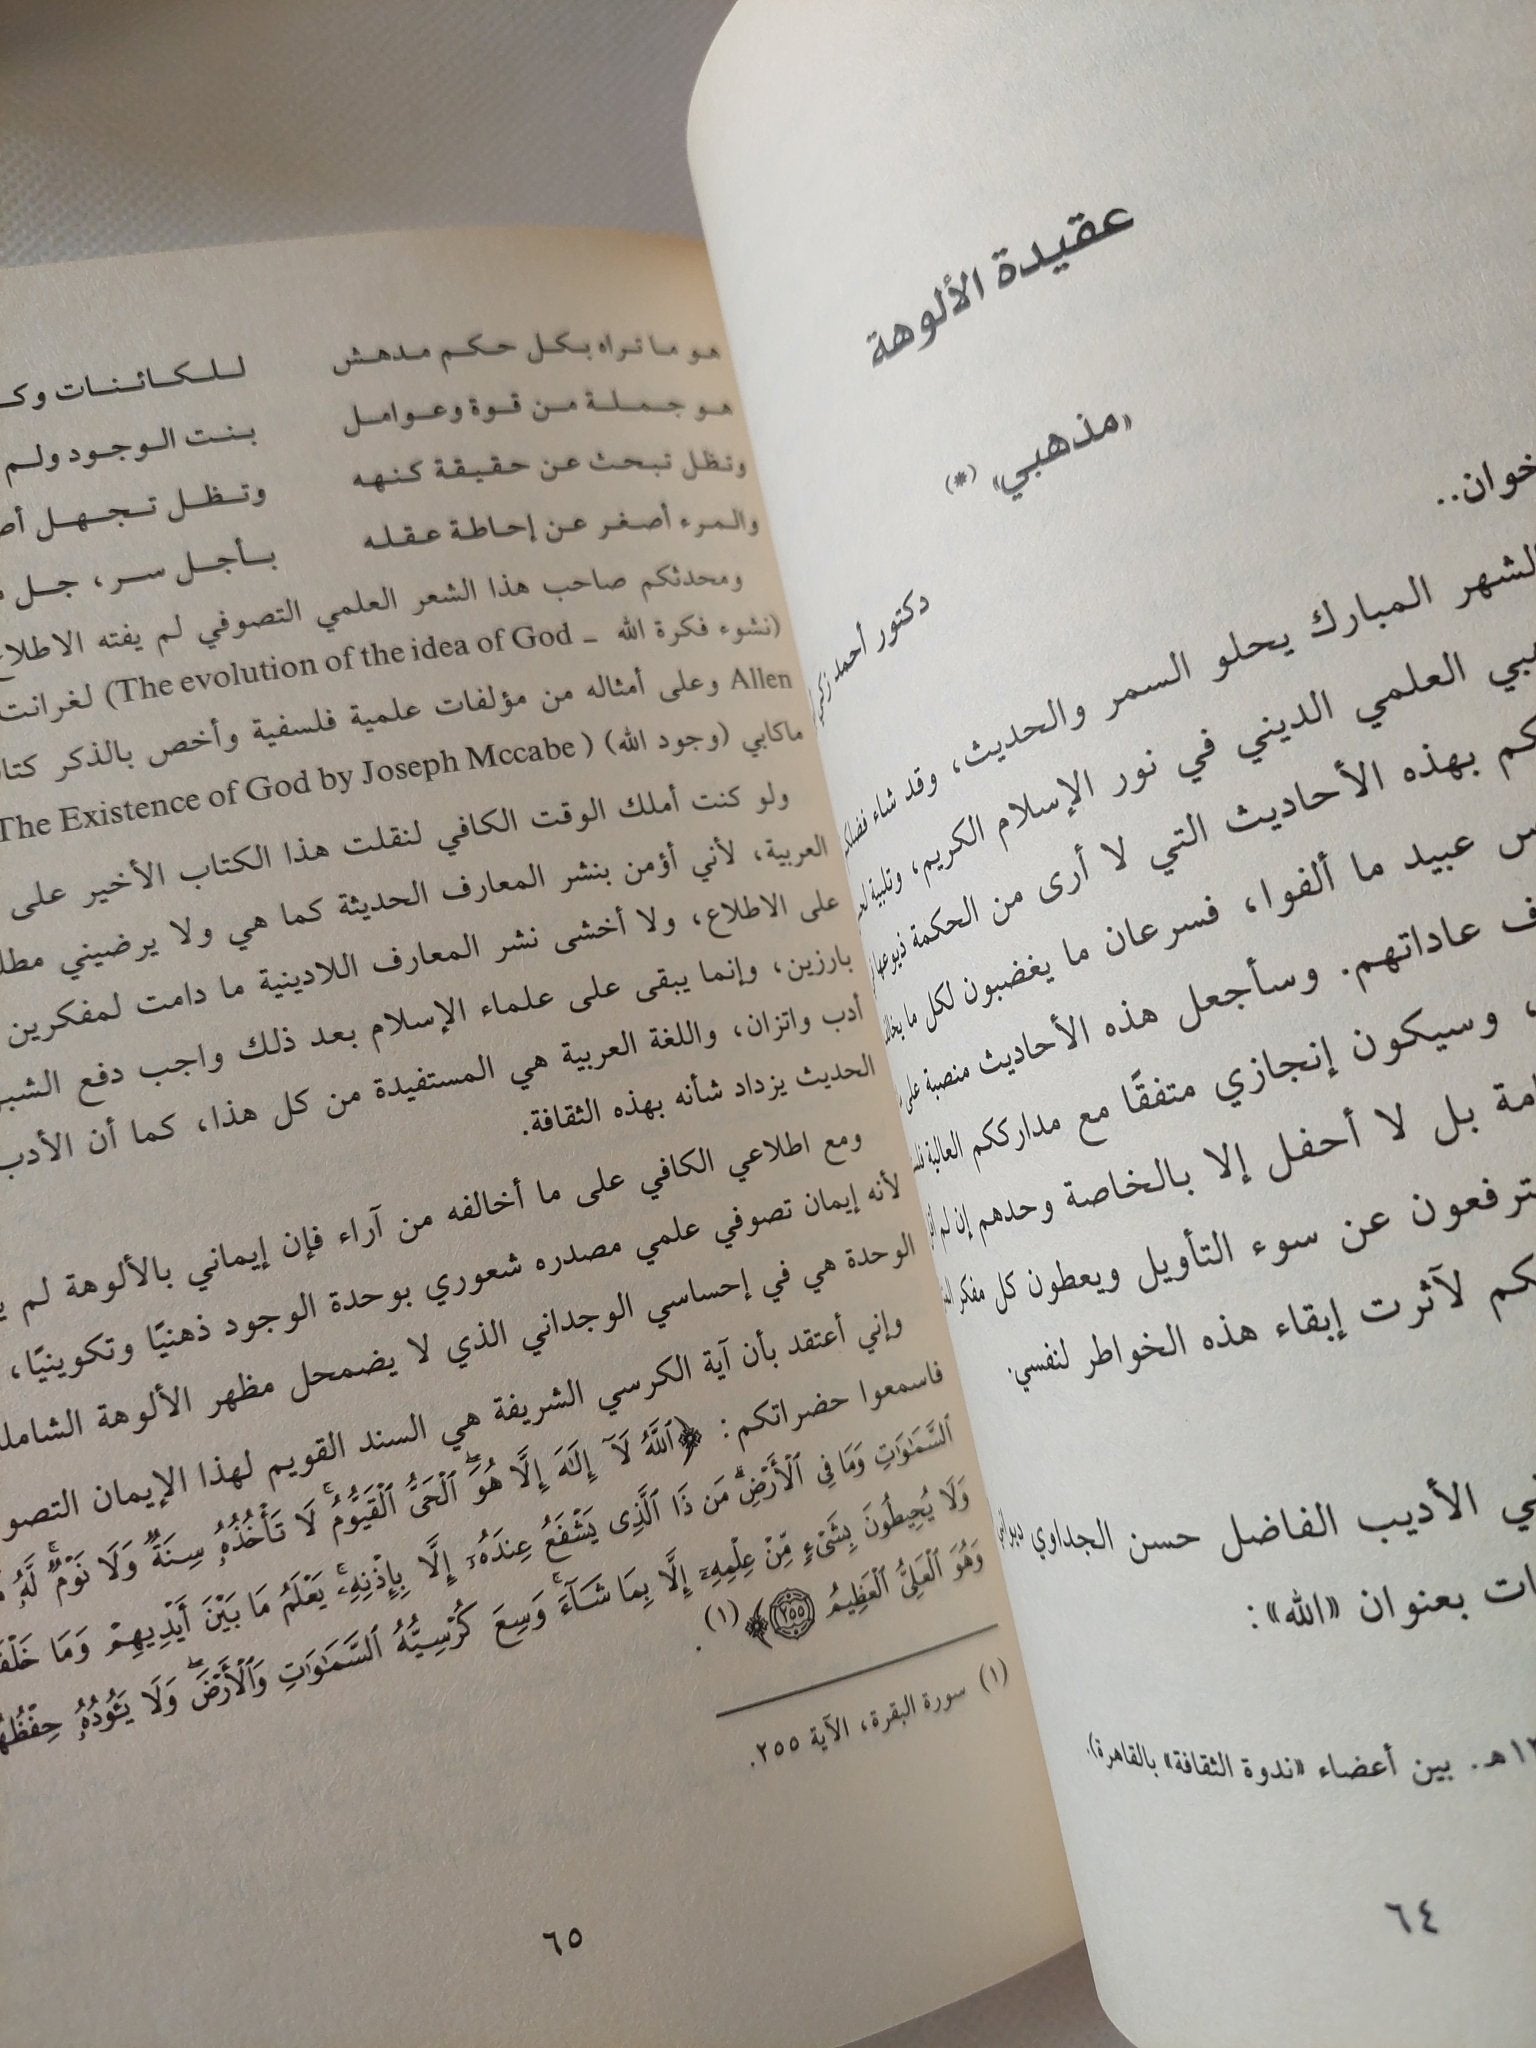 عقيدة الألوهة
«مذهبي» (*)
دكتور أحمد زكي
خوان..
الشهر المبارك يحلو السمر والحديث، وقد شاء فضلكم
العلمي الديني في نور الإسلام الكريم، وتلبية
كم بهذه الأحاديث التي لا أرى من الحكمة ذيوعها
س عبيد ما ألفوا، فسرعان ما يغضبون لكل ما يخالف
ف عاداتهم. وسأجعل هذه الأحاديث منصبة على
، وسيكون إنجازي متفقًا مع مدارككم العالية
امة بل لا أحفل إلا بالخاصة وحدهم إن لم
ترفعون عن سوء التأويل ويعطون كل مفكر
كم لآثرت إبقاء هذه الخواطر لنفسي.
ي الأديب الفاضل حسن الجداوي ديواني
ات بعنوان «الله»:
١٣هـ. بين أعضاء «ندوة الثقافة» بالقاهرة).
٦٤
هو ما تراه بكل حكم مدهش للكائنات وك
هو جملة من قوة وعوامل بنت الوجود ولم
وتظل تبحث عن حقيقة كنهه وتظل تجهل أص
والمرء أصغر عن إحاطة عقله بأجل سر، جل
ومحدثكم صاحب هذا الشعر العلمي التصوفي لم يفته الاطلاع
(نشوء فكرة الله ـ The evolution of the idea of God) لغرانت
Allen وعلى أمثاله من مؤلفات علمية فلسفية وأخص بالذكر كتاب
ماكابي (وجود الله) (The Existence of God by Joseph Mccabe
ولو كنت أملك الوقت الكافي لنقلت هذا الكتاب الأخير على
العربية، لأني أؤمن بنشر المعارف الحديثة كما هي ولا يرضيني
على الاطلاع، ولا أخشى نشر المعارف اللادينية ما دامت لمفكرين
بارزين، وإنما يبقى على علماء الإسلام بعد ذلك واجب دفع
أدب واتزان، واللغة العربية هي المستفيدة من كل هذا، كما أن الأدب
الحديث يزداد شأنه بهذه الثقافة.
ومع اطلاعي الكافي على ما أخالفه من آراء فإن إيماني بالألوهة لم
لأنه إيمان تصوفي علمي مصدره شعوري بوحدة الوجود ذهنيًا وتكوينيًا،
الوحدة هي في إحساسي الوجداني الذي لا يضمحل مظهر الألوهة الشاملة
وإني أعتقد بأن آية الكرسي الشريفة هي السند القويم لهذا الإيمان التصو
فاسمعوا حضراتكم: ﴿ٱللَّهُ لَآ إِلَٰهَ إِلَّا هُوَ ٱلْحَىُّ ٱلْقَيُّومُ ۚ لَا تَأْخُذُهُۥ سِنَةٌ وَلَا نَوْمٌ ۚ لَّهُۥ
ٱلسَّمَٰوَٰتِ وَمَا فِى ٱلْأَرْضِ ۗ مَن ذَا ٱلَّذِى يَشْفَعُ عِندَهُۥٓ إِلَّا بِإِذْنِهِۦ ۚ يَعْلَمُ مَا بَيْنَ أَيْدِيهِمْ وَمَا خَلْفَ
وَلَا يُحِيطُونَ بِشَىْءٍ مِّنْ عِلْمِهِۦٓ إِلَّا بِمَا شَآءَ ۚ وَسِعَ كُرْسِيُّهُ ٱلسَّمَٰوَٰتِ وَٱلْأَرْضَ ۖ وَلَا يَـُٔودُهُۥ حِفْظُهُ
وَهُوَ ٱلْعَلِىُّ ٱلْعَظِيمُ ٢٥٥﴾(١).
(١) سورة البقرة، الآية ٢٥٥.
٦٥